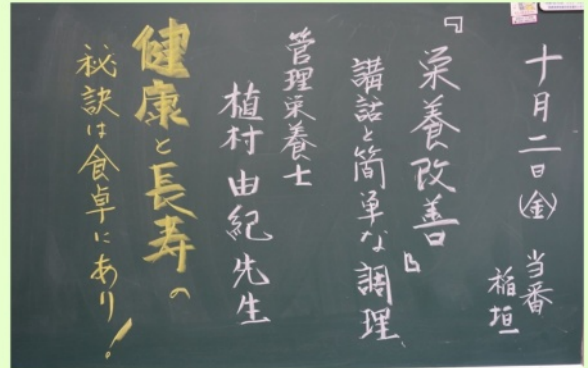 十月二日(金)
当番 稲垣
『栄養改善』
講話と簡単な調理
管理栄養士
植村由紀先生
健康と長寿の
秘訣は食卓にあり!